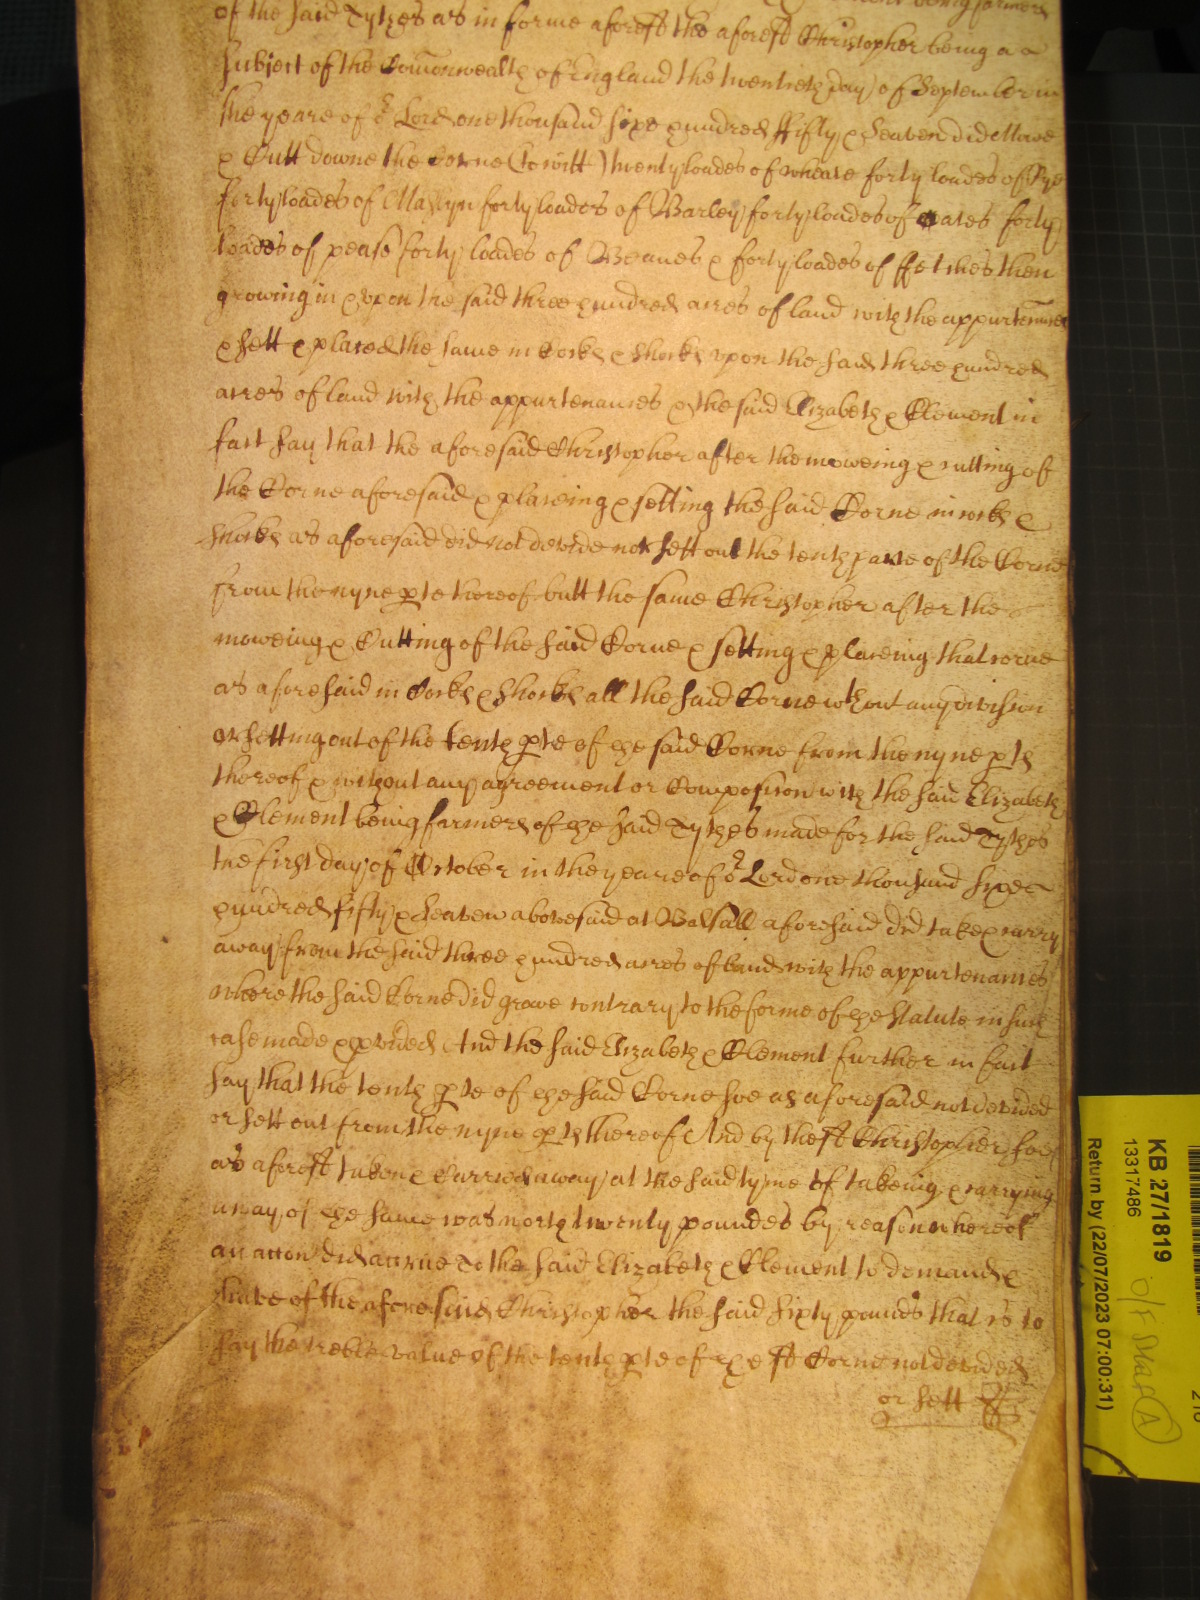 being farmers
of the said Tythes as in forme aforesd the aforesd Christopher being a
subject of the Comonwealth of England the twentieth day of September in
the yeare of or Lord one thousand sixe hundred ffifty & Seaven did Mowe
& Cutt downe the Corne (to witt) twenty loades of wheate forty loades of Rye
forty loades of Maslyn forty loades of Barley forty loades of oates forty
loades of pease forty loades of Beanes & forty loades of ffetches then
growing in & vpon the said three hundred acres of land with the appurtennces
& sett & placed the same in Cocks & Shocks vpon the said three hundred
acres of land with the appurtenances & the said Elizabeth & Clement in
fact say that the aforesaid Christopher after the moweing & cutting of
the Corne aforesaid & placeing & setting the said Corne in cocks &
shocks as aforesaid did not devide nor sett out the tenth parte of the Corne
from the nyne pte thereof butt the same Christopher after the
moweing & Cutting of the said Corne & setting & placeing that corne
as aforesaid in Cocks & Shocks all the said Corne wthout any division
or setting out of the tenth pte of the said Corne from the nyne pts
thereof & without any agreement or Composicion with the said Elizabeth
& Clement being farmers of the said Tythes made for the said Tythes
the first day of October in the yeare of or Lord one thousand sixe
hundred fifty & Seaven abovesaid at Balsall aforesaid did take & carry
away from the said three hundred acres of land with the appurtenances
where the said Corne did growe contrary to the forme of the Statute in such
case made & pvided And the said Elizabeth & Clement further in fact
say that the tenth pte of the said Corne soe as aforesaid not devided
or sett out from the nyne pts thereof And by the sd Christopher soe
as aforesd taken & Carried away at the said tyme of takeing & carrying
away of the same was worth twenty poundes by reason whereof
an accon did accrue To the said Elizabeth & Clement to demand &
have of the aforesaid Christopher the said sixty pounds that is to
say the treble value of the tenth pte of the sd Corne not devided
or sett
KB 27/1819
13317486
Return by (22/07/2023 07:00:31)
O/F Staf A